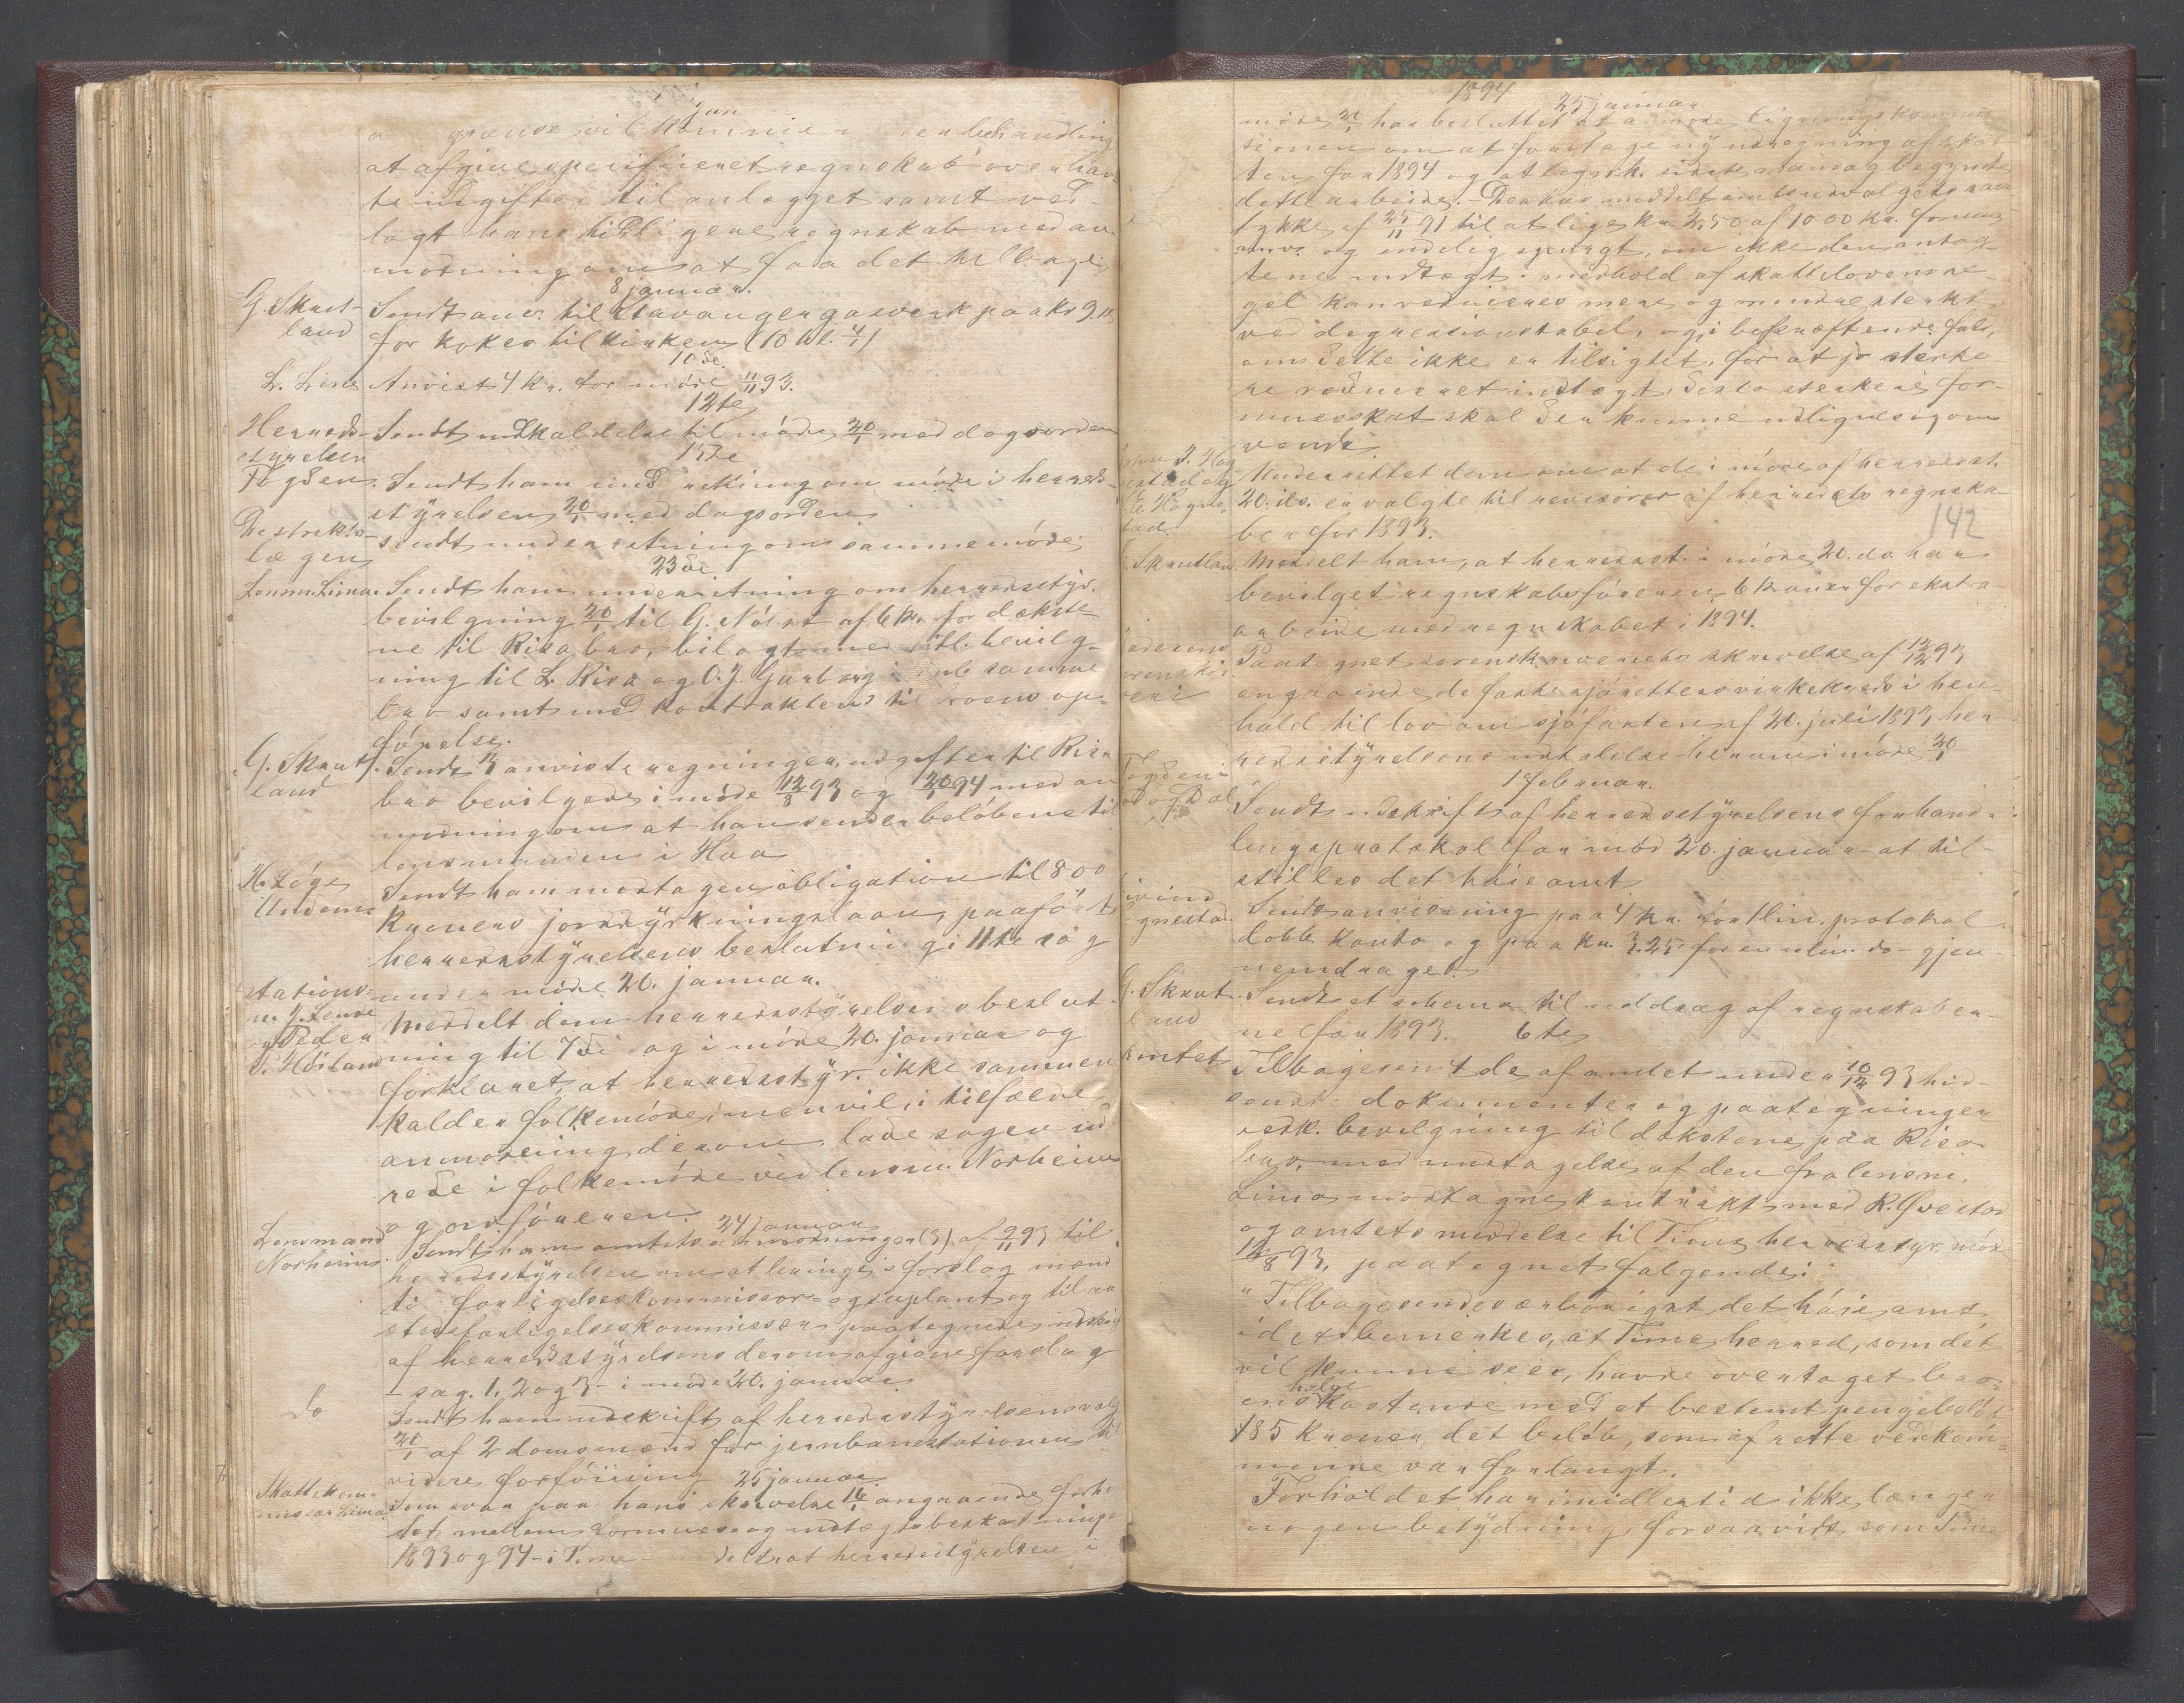 Jan
grændse vil komme under behandling
at afgive specificeret regnskab over hav-
te udgifter til anlægget samt ved-
lagt hans tidligere regnskab med an-
modning om at faa det tilbage
8 januar.
G. Skrut-
land
Sendt anv. til Stavanger gasverk paa kr 9.
for kokes til kirken (10 hl. 4/1)
10de
L. Line Anvist 4 kr. for møde 11/11 93.
12te
Herreds-
styrelsen
Sendt indkaldelse til møde 20/1 med dagsorden
15de
Fogden. Sendt ham indberetning om møde i herreds-
styrelsen 20/1 med dagsorden.
Destrikts-
lægen
sendt underretning om samme møde.
23de
Lensm. Lima. Sendt ham underretning om herredsstyr.
bevilgning 20/1 til G. Nörst af 6 kr. for dækste-
ne til Risa bro, bilagt med stb. bevilg-
ning til L. Risa og O. J. Garborg samme
bro samt med kontrakten til broens op-
førelse.
G. Skrut-
land
Sendt 3 anviste regninger, udgifter til Risa
bro bevilgede i møde 12/8 93 og 20/1 94 med an-
modning om at han sender beløbene til
lensmanden i Haa
H. Löge
Undem
Sendt ham modtagen obligation til 800
kroners jorddyrkningslaan, paaført
herredsstyrelsens beslutning i 11te sag
under møde 20. januar.
Stations-
m. J. Lende
og Peder
P. Høiland
Meddelt dem herredsstyrelsens beslut-
ning til 7de sag i møde 20. januar og
forklaret, at herredsstyr. ikke sammen-
kalder folkemøde, men vil, i tilfælde
anmodning derom, lade sagen ud-
rede i folkemøde ved lensm. Norheim
og ordføreren.
24 januar
Lensmand
Norheim.
Sendt ham amtets anmodninger (3) af 9/11 93 til
herredsstyrelsen om at bringe i forslag mænd
til forligelseskommissær- og suplant og til en
steds forligelseskommissær paategnede udskrift
af herredsstyrelsens derom afgivne forslag
– sag. 1, 2 og 3 – i møde 20. januar.
do
Sendt ham udskrift af herredsstyrelsens valg
20/1 af 2 domsmænd for jernbanestationen til
videre forføining
25 januar
Skattekom-
missær Lima.
Som svar paa hans skrivelse 16/1 angaaende forho-
let mellem formues- og indtægtsbeskatninge
1893 og 94 i Time meddelt, at herredsstyrelsen i
1894
25 januar
møde 20/1 har besluttet at anmode ligningskommis-
sionen om at foretage ny udregning af skat-
ten for 1894 og at lignk. sidste mandag begyndte
dette arbeide. Derhos meddelt amtsudvalgets sam-
tykke af 25/11 91 til at lige kr 2,50 af 1000 kr. formue
og endelig spurgt, om ikke den antag-
tene indtægt i medhold af skattelovens re-
gel kan reduceres mere og mindre sterkt
ved degressionstabel, og, i bekræftende fald,
om dette ikke er tilsigtet, for at jo sterke-
re reduceret indtægt, desto sterkere for-
muesskat skal der kunne udlignes og om-
vendt.
Underrettet dem om at de i møde af herredsst.
20. ds. er valgte til revisorer af herredets regnska-
ber for 1893.
142
G. Skrutland
Meddelt ham, at herredsst. i møde 20. do. har
bevilget regnskabsføreren 6 kroner for ekstra
arbeide med regnskabet i 1894.
Paategnet sorenskriverens skrivelse af 12/12 93
angaaende de faste sjørettersvirkekreds i hen-
hold til lov om sjøfarten af 20. juli 1893, her-
redsstyrelsens udtalelse herom i møde 20/1
1 februar.
Fogden i
Sendt udskrift af herredsstyrelsens forhand-
lingsprotokol for mød 20. januar at til-
stilles det høie amt
Sendt anvisning paa 4 kr. for 1 lin. protokol
dobb. konto og paa kr. 3.25 for en ulin. do gjen-
nemdraget
G. Skrut
land
Sendt et schema til uddrag af regnskaber-
ne for 1893.
6te
Amtet
Tilbagesendt de af amtet under 10/12 93 hid-
sendte dokumenter og paategninger
vedk. bevilgning til dækstene paa Risa
bro, med undtagelse af den fra lensm.
Lima modtagne kontrakt med R. Qvestad
og amtets meddelse til Time herredsstyr. møde
12/8 93, paategnet følgende:
"Tilbagesendes ærbødigst det høie amt,
idet bemærkes, at Time herred, som det
vil kunne sees, havde overtaget bro-
ens halve kostende med et bestemt pengebeløb
185 kroner, det beløb, som af rette vedkom-
mende var forlangt.
Forholdet har imidlertid ikke længer
nogen betydning, forsaavidt, som Time